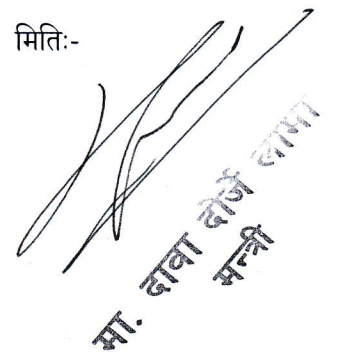 मितिः-
मा. दावा दोर्जे लामा
मन्त्री